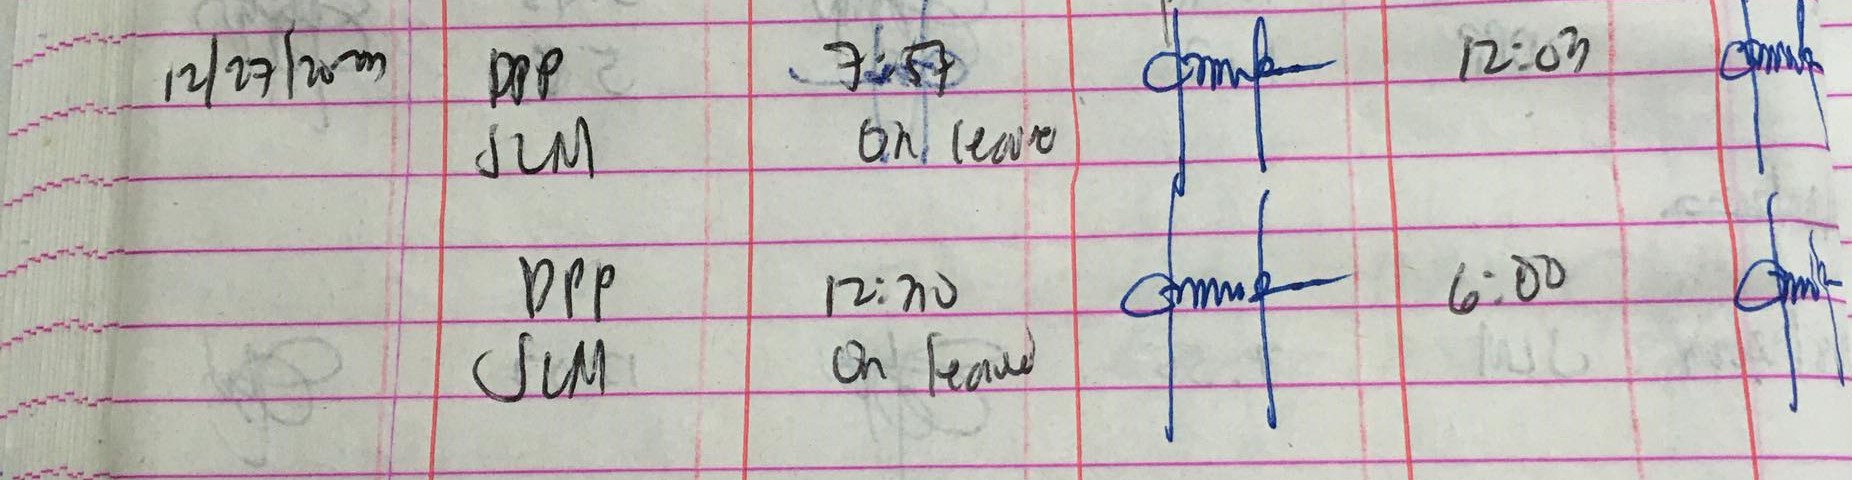 12/27/2023 DPP 7:57 12:03
JLM On leave
DPP 12:30 6:00
JLM On leave